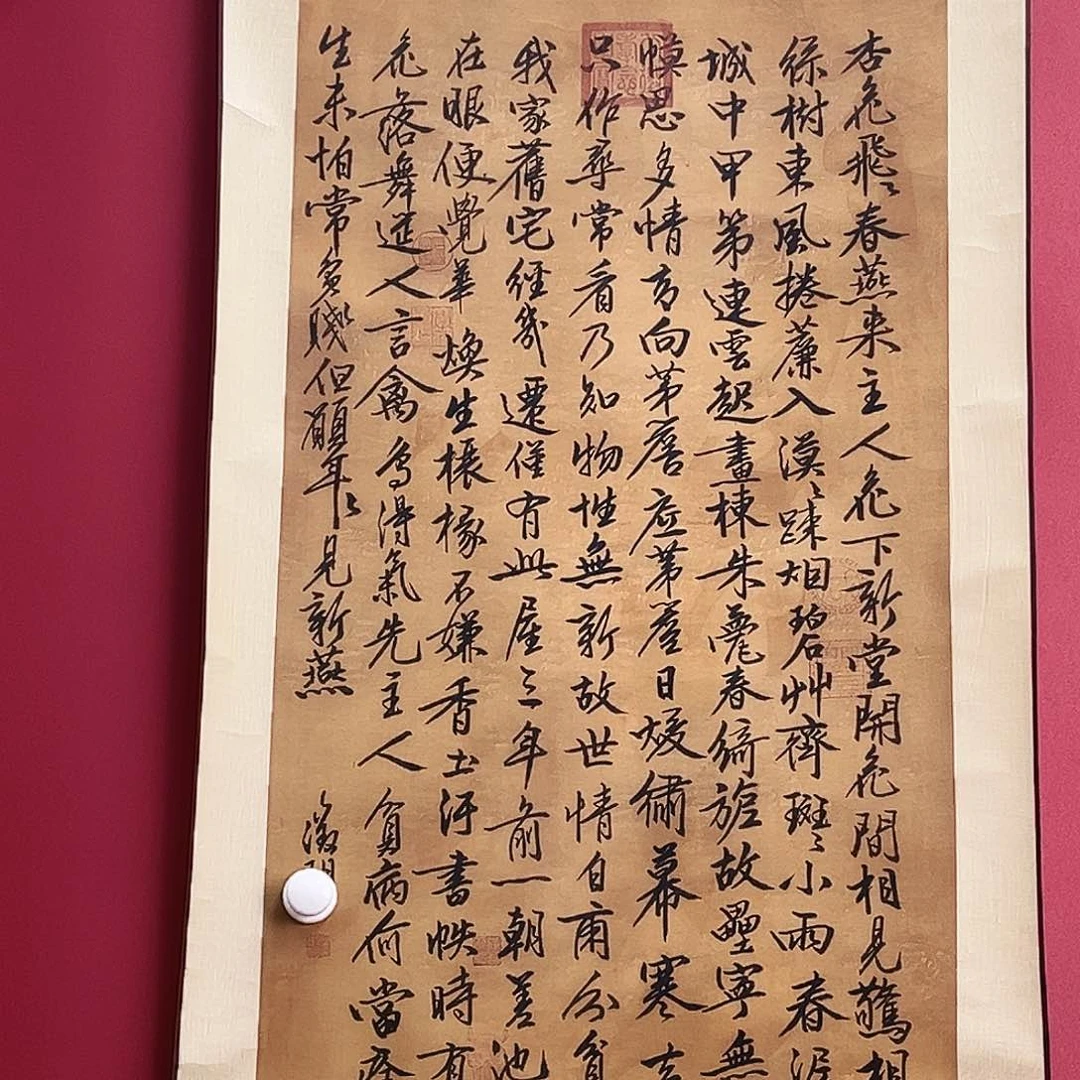 杏花飛〻春燕来主人花下新堂開花間相見驚相
綠樹東風捲簾入漠〻疎烟碧艸齊斑〻小雨春泥
城中甲第連雲起畫棟朱甍春綺旎故壘寧無
幙思多情高向茅簷应茅簷日煖繡幕寒
只作尋常看乃知物性無新故世情自甭分貧
我家舊宅經幾遷僅有此屋三年前一朝差池
在眼便覺華煥生榱椽不嫌香土汙書帙時有
花落舞筵人言禽鳥得氣先主人貧病何當痊
生未怕常貧賤但願年〻見新燕